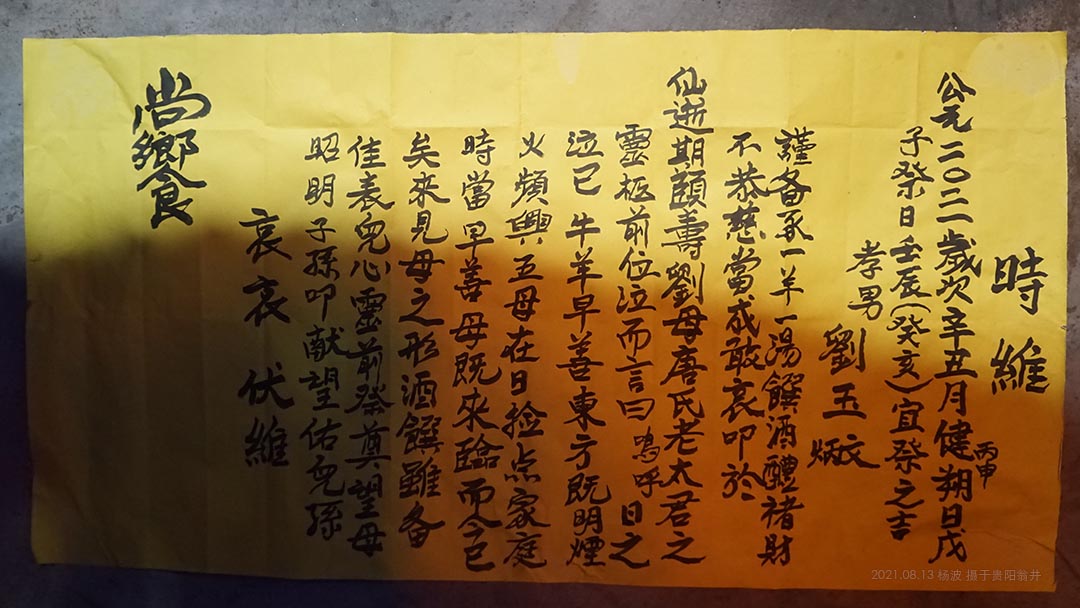 時維
公元二〇二一歲次辛丑月健丙申朔日戊
子祭日壬辰(癸亥)宜祭之吉
孝男劉玉炳
謹备承一羊一湯饌酒醴禇財
不恭慈當成敢哀叩於
仙逝期頤壽劉母唐氏老太君之
靈柩前位泣而言曰嗚呼日之
泣已牛羊早善東方既明煙
火頻興五母在日捡点家庭
時當早善母既來臨而今已
矣來見母之形酒饌雖备
佳表兒心靈前祭奠望母
昭明子孫叩献望佑兒孫
哀哀伏維
尚饗
2021.08.13 杨波 摄于贵阳翁井